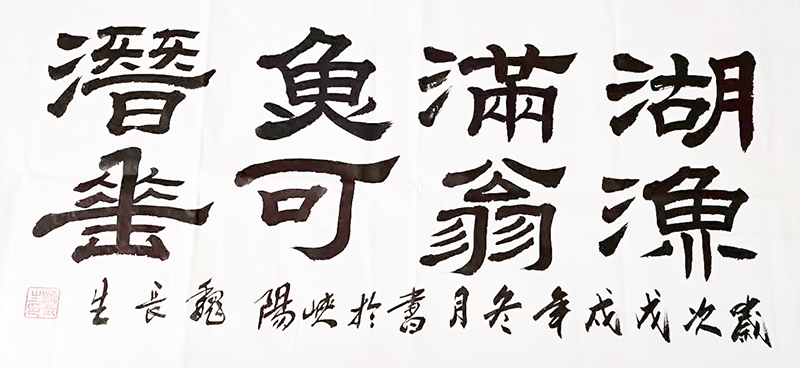 湖滿魚潛
漁翁可垂
歲次戊戌年冬月書於峽陽 魏長生